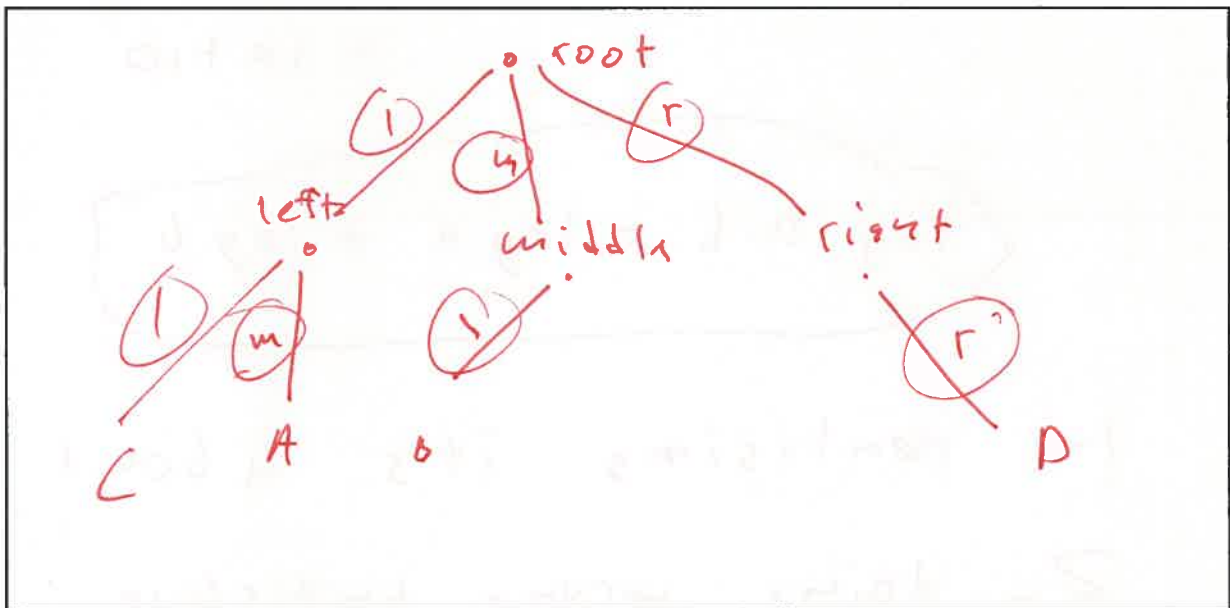 root
l m r
left middle right
l m l r
C A B D